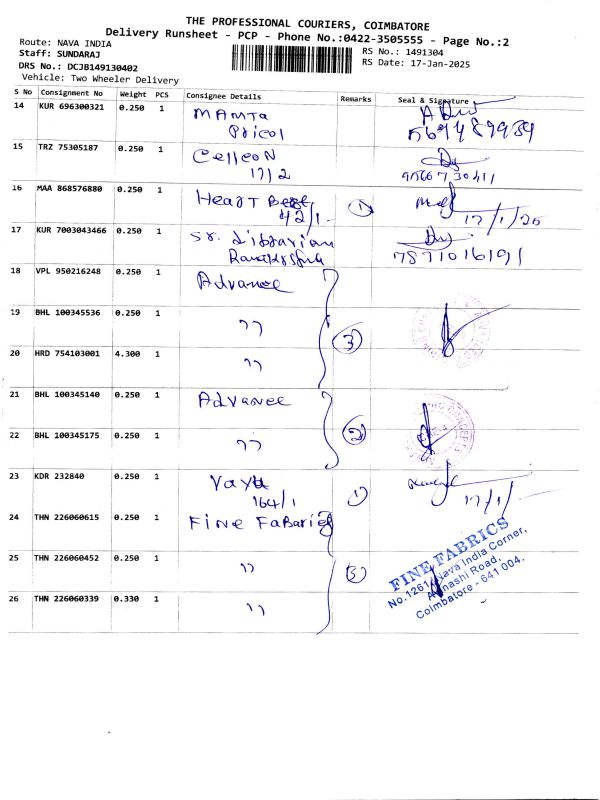 THE PROFESSIONAL COURIERS, COIMBATORE
Delivery Runsheet - PCP - Phone No.:0422-3505555 - Page No.:2
Route: NAVA INDIA
Staff: SUNDARAJ
DRS No.: DCJB149130402
Vehicle: Two Wheeler Delivery
RS No.: 1491304
RS Date: 17-Jan-2025
S No Consignment No Weight PCS Consignee Details Remarks Seal & Signature
14 KUR 696300321 0.250 1 MAMTA
Pricol
15 TRZ 75305187 0.250 1 CelleoN
17/2
9566730411
16 MAA 868576880 0.250 1 Heart Beat
42/1. 1 17/1/25
17 KUR 7003043466 0.250 1 Sr. Librarian
7871016191
18 VPL 950216248 0.250 1 Advance
19 BHL 100345536 0.250 1 " 3
20 HRD 754103001 4.300 1 "
21 BHL 100345140 0.250 1 Advance
22 BHL 100345175 0.250 1 " 2
23 KDR 232840 0.250 1
164/1 1 17/1/
24 THN 226060615 0.250 1 Fine Fabaries
25 THN 226060452 0.250 1 " 3
26 THN 226060339 0.330 1 "
FINE FABRICS
No.1261, Nava India Corner,
Avinashi Road,
Coimbatore - 641 004.